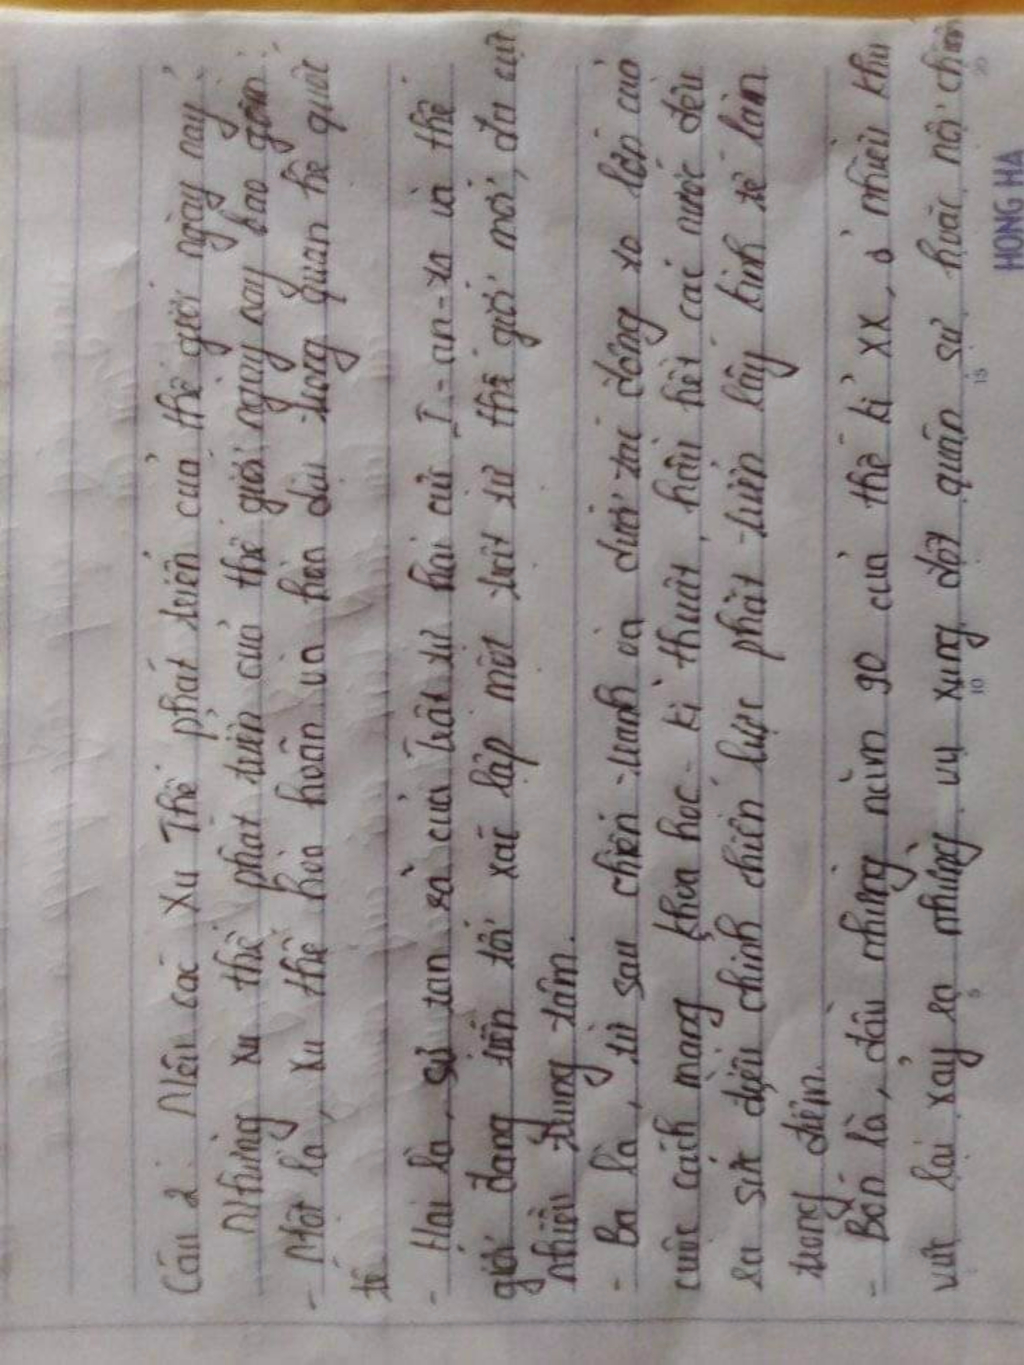 Câu 2: Nêu các xu thế phát triển của thế giới ngày nay?
Những xu thế phát triển của thế giới ngày nay bao gồm:
- Một là, xu thế hòa hoãn và hòa dịu trong quan hệ quốc
tế
- Hai là, sự tan rã của trật tự hai cực I-an-ta và thế
giới đang tiến tới xác lập một trật tự thế giới mới, đa cực
nhiều trung tâm.
- Ba là, từ sau chiến tranh và dưới tác động to lớn của
cuộc cách mạng khoa học - kĩ thuật, hầu hết các nước đều
ra sức điều chỉnh chiến lược phát triển lấy kinh tế làm
trọng điểm.
- Bốn là, đầu những năm 90 của thế kỉ XX, ở nhiều khu
vực lại xảy ra những vụ xung đột quân sự hoặc nội chiến
5 10 15 20
HONG HA